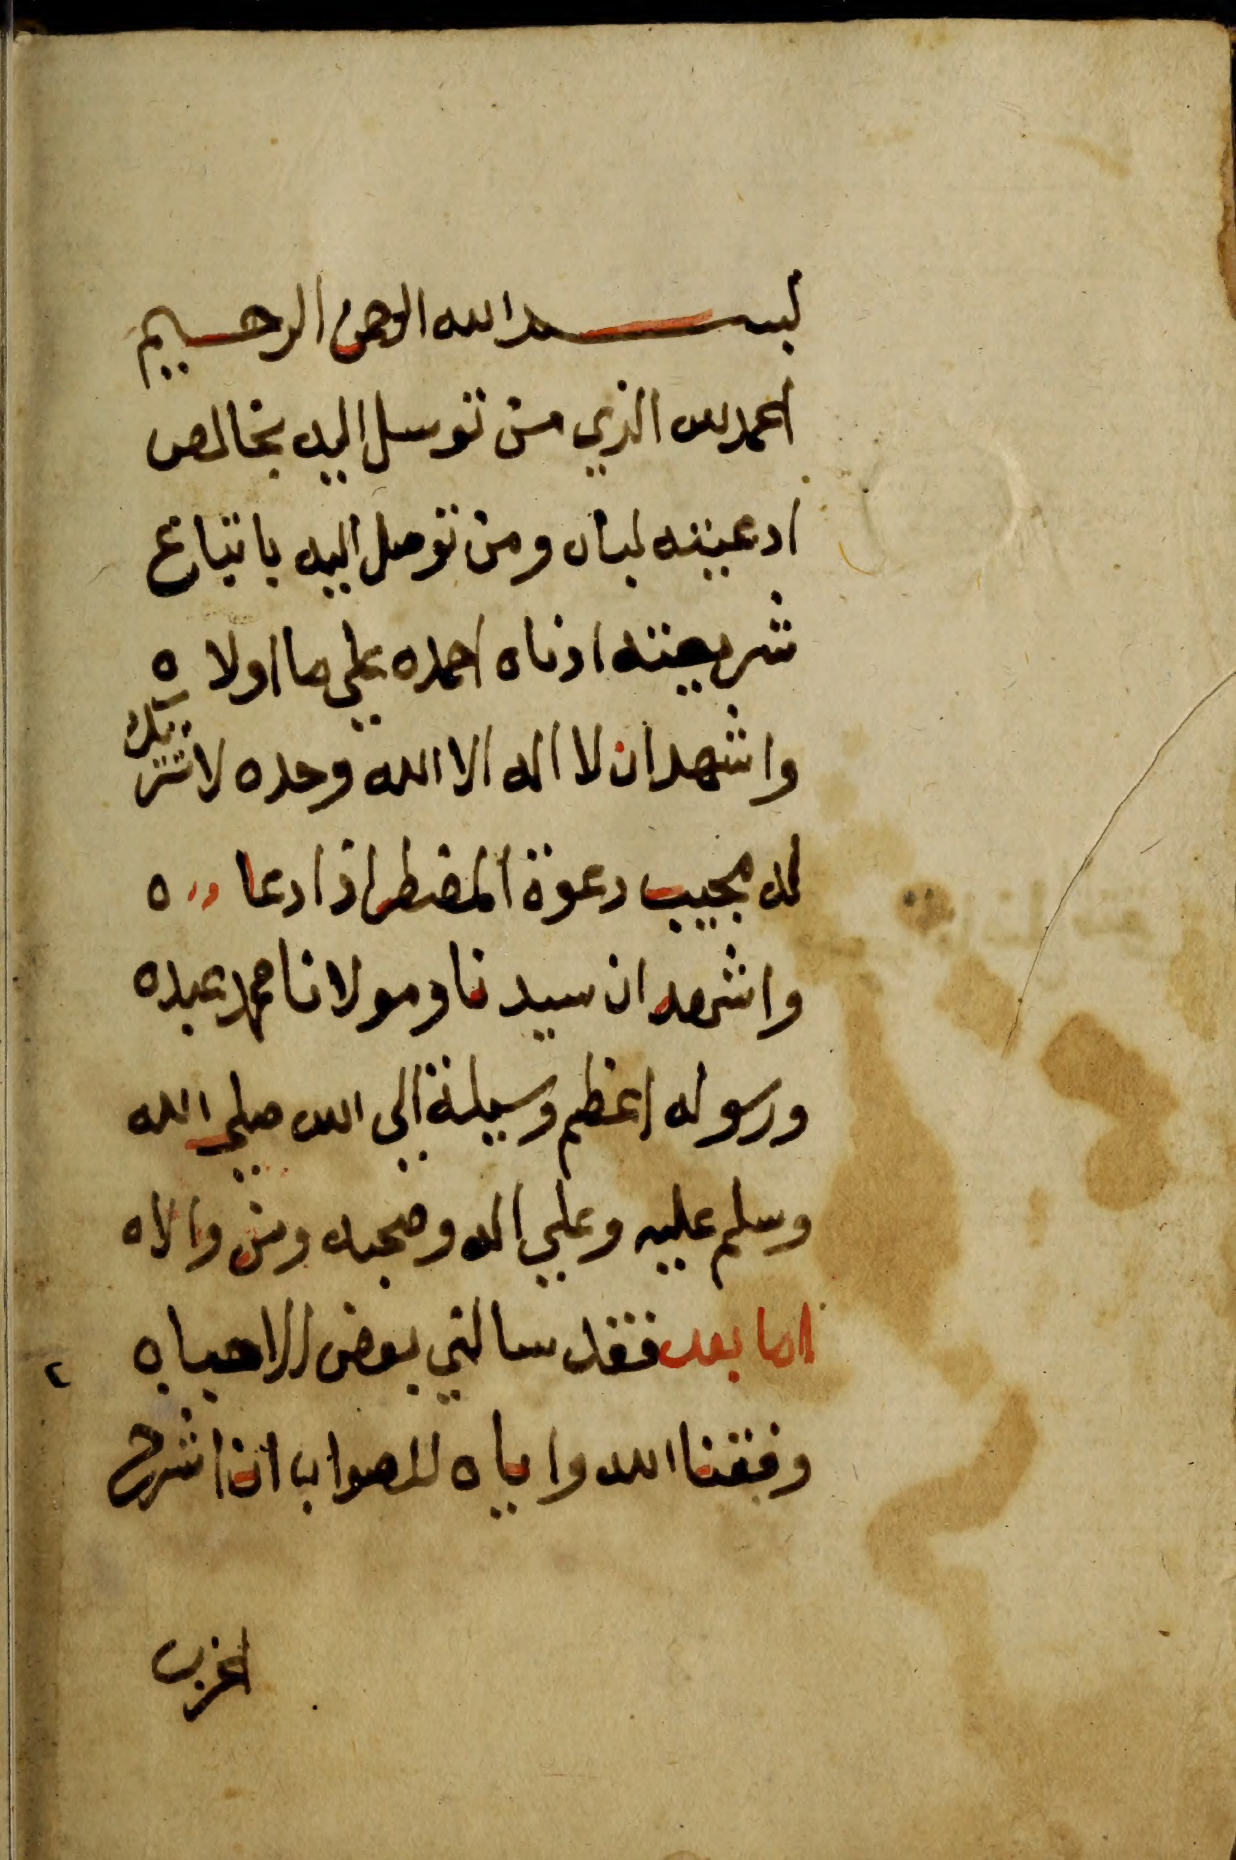 بسم الله الرحمن الرحيم
الحمد لله الذي من توسل اليه بخالص
ادعيته لباه ومن توصل اليه باتباع
شريعته ادناه احمده علي ما اولاه
واشهد ان لا اله الا الله وحده لا شريك
له مجيب دعوة المضطر اذا دعاه
واشهد ان سيدنا ومولانا محمد عبده
ورسوله اعظم وسيلة الي الله صلي الله
وسلم عليه وعلي اله وصحبه ومن والاه
اما بعد فقد سالني بعض الاحباب
وفقنا الله واياه للصواب ان اشرح
٢